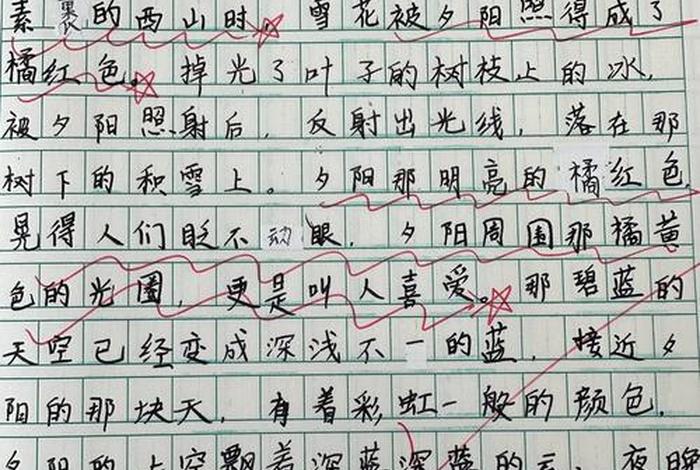 素裹的西山时，雪花被夕阳照得成了
橘红色。掉光了叶子的树枝上的冰，
被夕阳照射后，反射出光线，落在那
树下的积雪上。夕阳那明亮的橘红色
晃得人们眨不动眼，夕阳周围那橘黄
色的光圈，更是叫人喜爱。那碧蓝的
天空已经变成深浅不一的蓝，接近夕
阳的那块天，有着彩虹一般的颜色，
夕阳的上空飘着深蓝深蓝的云，夜晚